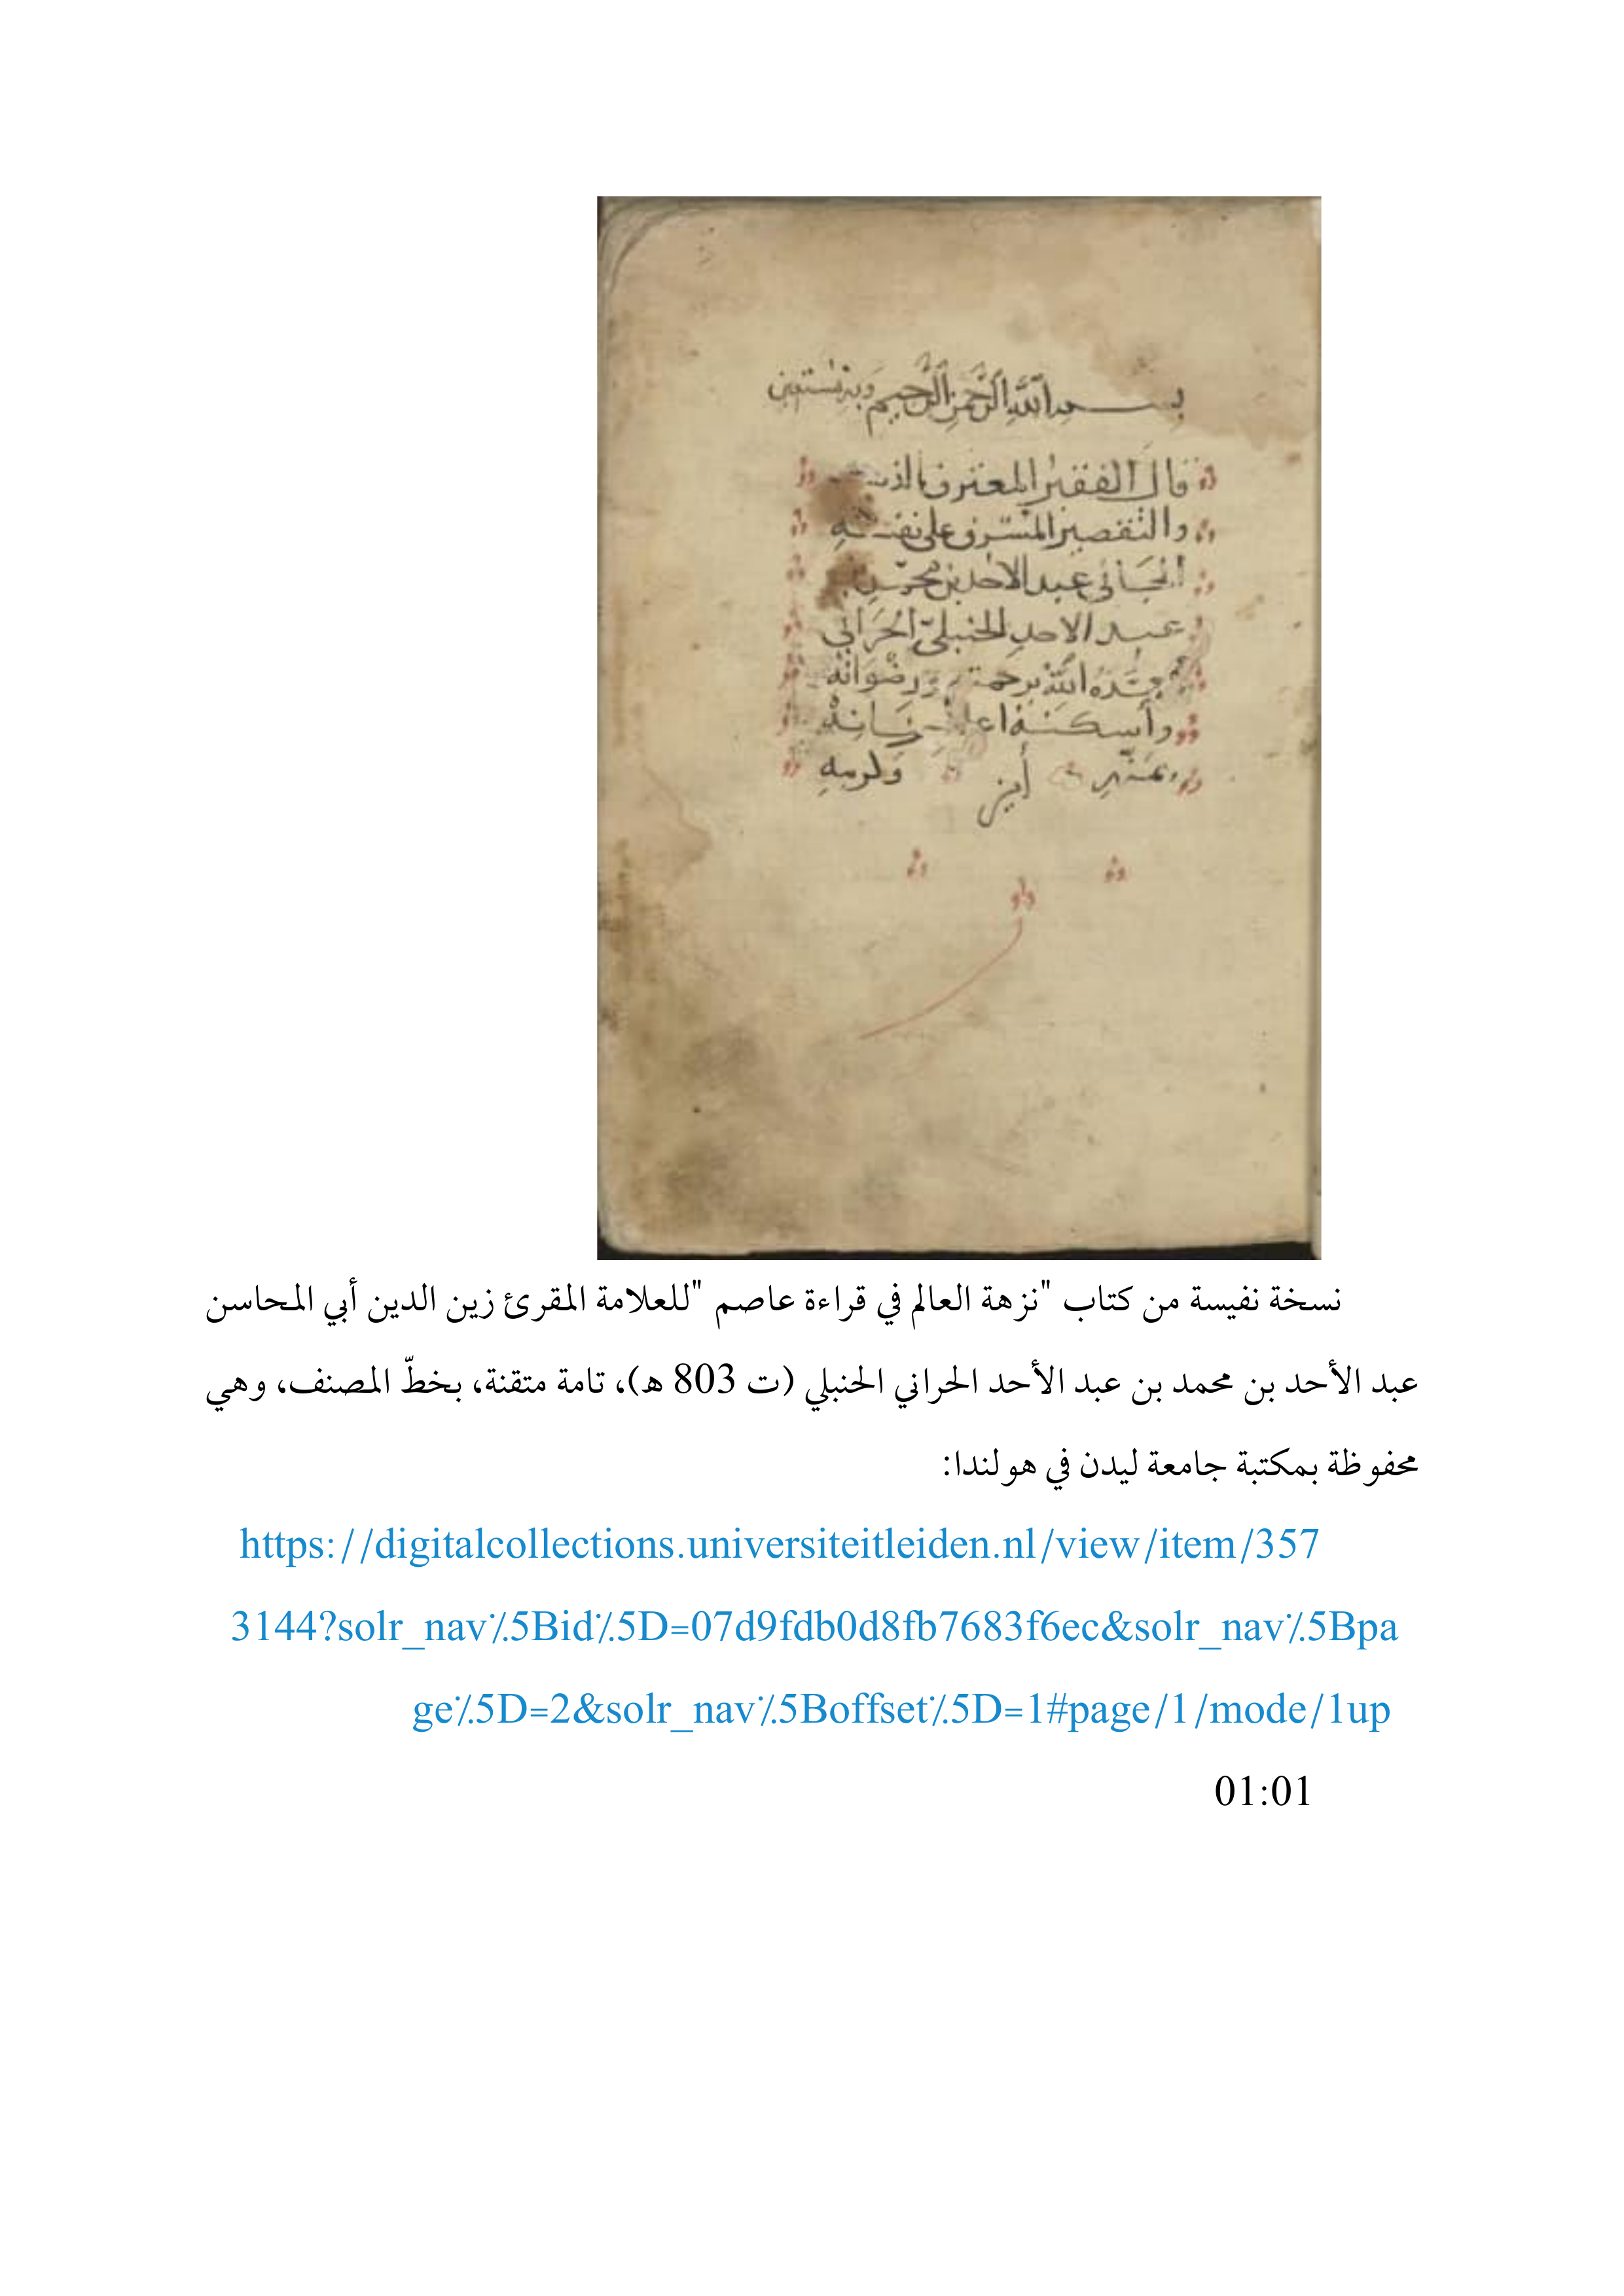 بسم الله الرحمن الرحيم وبه نستعين
قال الفقير المعترف بالذنب
والتقصير المسرف على نفسه
الجاني عبد الاحد بن محمد بن
عبد الاحد الحنبلي الحراني
تغمده الله برحمته ورضوانه
وأسكنه اعلى جنانه
نسخة نفيسة من كتاب "نزهة العالم في قراءة عاصم "للعلامة المقرئ زين الدين أبي المحاسن
عبد الأحد بن محمد بن عبد الأحد الحراني الحنبلي (ت 803 ه)، تامة متقنة، بخطّ المصنف، وهي
محفوظة بمكتبة جامعة ليدن في هولندا:
https://digitalcollections.universiteitleiden.nl/view/item/357
3144?solr_nav٪5Bid٪5D=07d9fdb0d8fb7683f6ec&solr_nav٪5Bpa
ge٪5D=2&solr_nav٪5Boffset٪5D=1#page/1/mode/1up
01:01